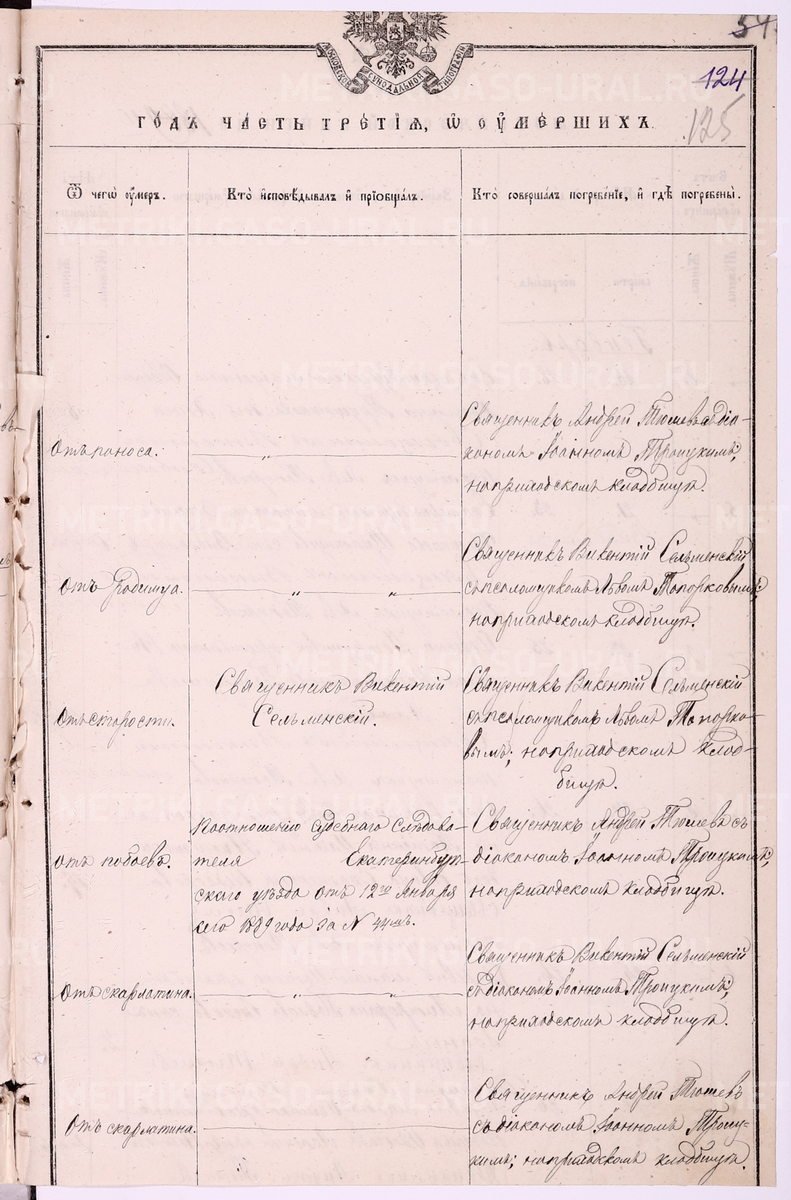 54
124
125
МОСКОВСКОЙ СѴНОДАЛЬНОЙ ТИПОГРАФІИ
ГОДЪ ЧАСТЬ ТРЕТІѦ, Ѡ ОУМЕРШИХЪ.
Ѿ чегѡ оумеръ.
Кто исповѣдывалъ и прїобщалъ.
Кто совершалъ погребенїе, и гдѣ погребены.
Отъ поноса.
Священникъ Андрей Тюшевъ съ діа-
кономъ Іоанномъ Троицкимъ;
на приходскомъ кладбищѣ.
Отъ родимца.
Священникъ Викентій Сельменскій
съ псаломщикомъ Львомъ Топорковымъ;
на приходскомъ кладбищѣ.
Отъ старости.
Священникъ Викентій
Сельменскій.
Священникъ Викентій Сельменскій
съ псаломщикомъ Львомъ Топорко-
вымъ; на приходскомъ клад-
бищѣ.
Отъ побоевъ.
По отношенію судебнаго Слѣдова-
теля Екатеринбур-
скаго уѣзда отъ 12го Января
сего 1889 года за № 44мъ.
Священникъ Андрей Тюшевъ съ
діакономъ Іоанномъ Троицкимъ;
на приходскомъ кладбищѣ.
Отъ скарлатина.
Священникъ Викентій Сельменскій
съ діакономъ Іоанномъ Троицкимъ;
на приходскомъ кладбищѣ.
Отъ скарлатина.
Священникъ Андрей Тюшевъ
съ діакономъ Іоанномъ Троиц-
кимъ; на приходскомъ кладбищѣ.